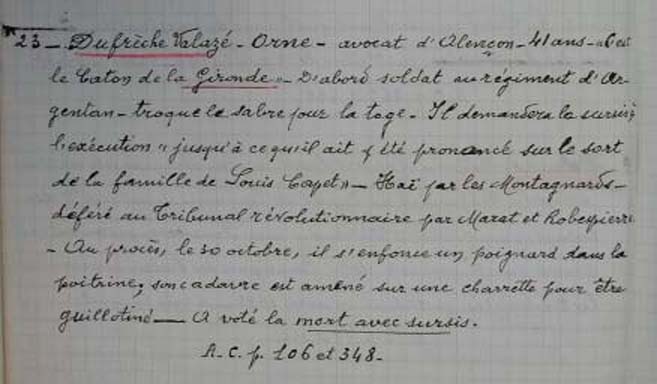 23 - Dufriche Valazé - Orne - avocat d'Alençon - 41 ans - "C'est
le Caton de la Gironde" - D'abord soldat au régiment d'Ar-
gentan - troque le sabre pour la toge - Il demandera le sursis à
l'exécution "jusqu'à ce qu'il ait été prononcé sur le sort
de la famille de Louis Capet" - Haï par les Montagnards -
déféré au Tribunal révolutionnaire par Marat et Robespierre
- Au procès, le 30 octobre, il s'enfonce un poignard dans la
poitrine; son cadavre est amené sur une charrette pour être
guillotiné - A voté la mort avec sursis.
A.C. p. 106 et 348 -